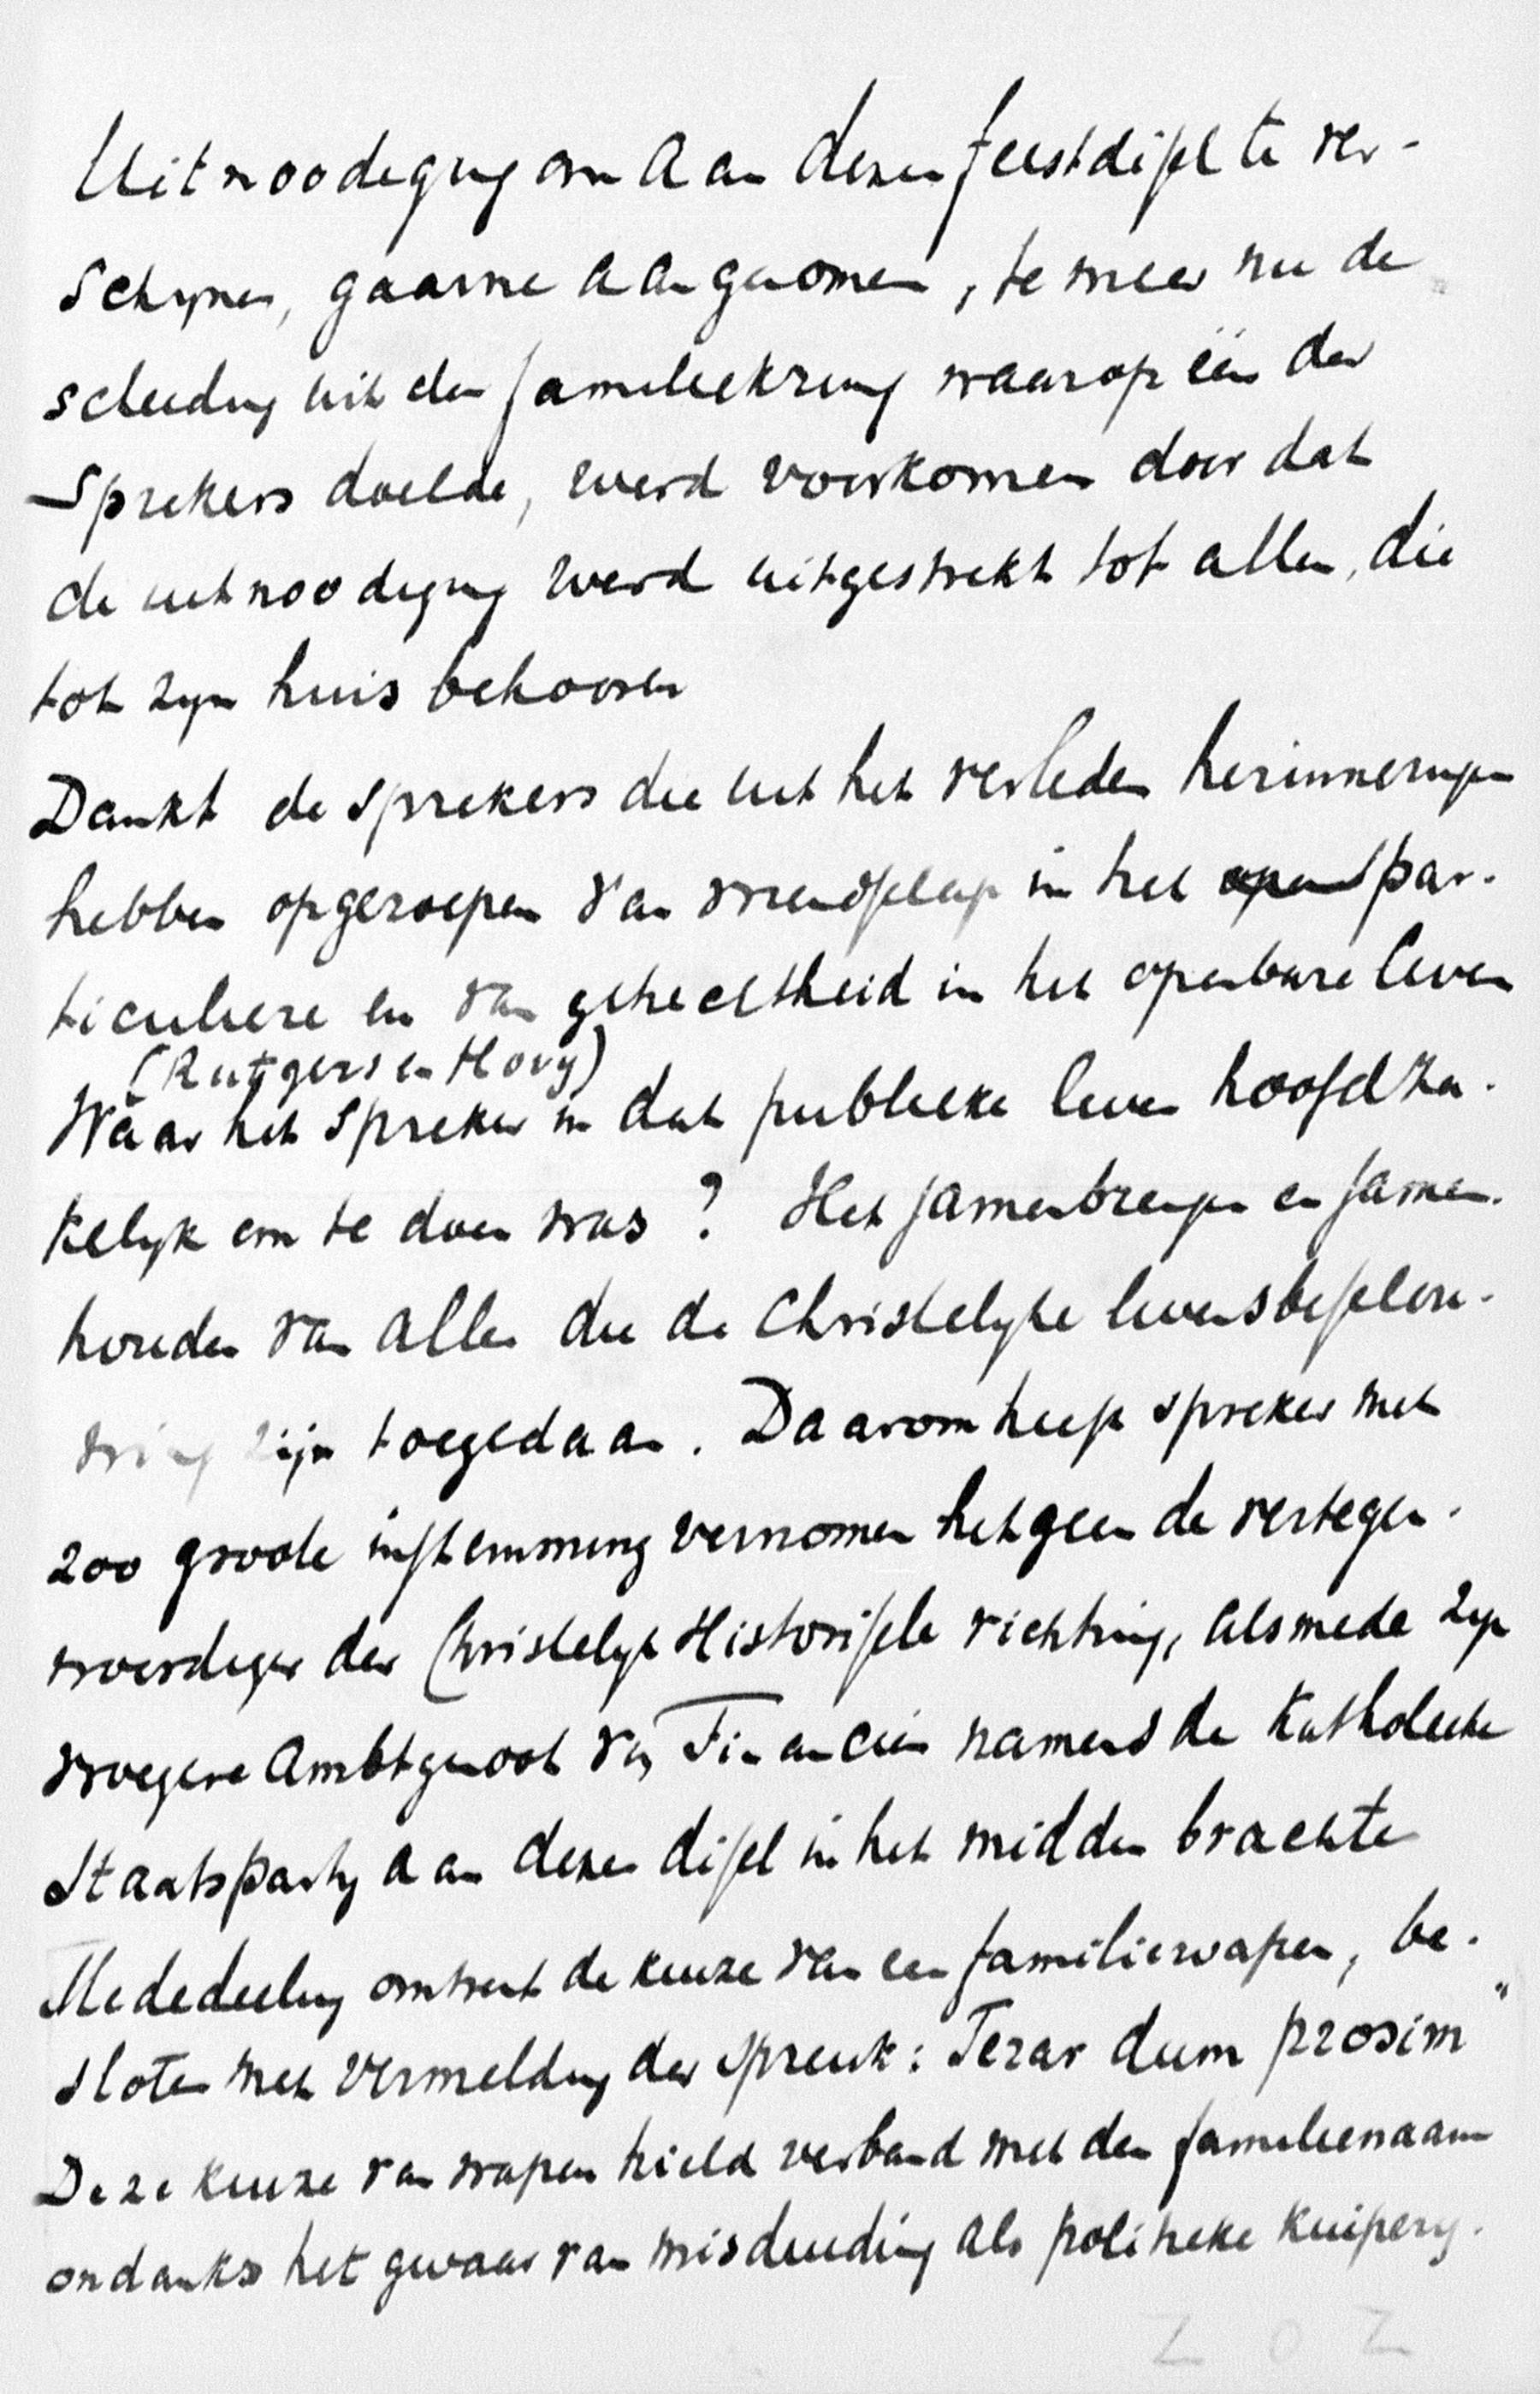 Uitnoodiging om aan dezen feestdisch te ver-
schijnen, gaarne aangenomen, te meer nu de
scheiding uit den familiekring waarop één der
sprekers doelde, werd voorkomen door dat
de uitnoodiging werd uitgestrekt tot allen, die
tot zijn huis behooren
Dankt de sprekers die uit het verleden herinneringen
hebben opgeroepen van vriendschap in het open par-
ticuliere en van gehechtheid in het openbare leven
(Rutgers en Hovy)
Waar het spreker in dat publieke leven hoofdza-
kelijk om te doen was? Het samenbrengen en samen-
houden van allen die de Christelijke levensbeschou-
wing zijn toegedaan. Daarom heeft spreker met
zoo groote instemming vernomen hetgeen de vertegen-
woordiger der Christelijk Historische richting, alsmede zijn
vroegere Ambtgenoot van Financiën namens de Katholieke
Staatspartij aan dezen disch in het midden brachten
Mededeeling omtrent de keuze van een familiewapen, be-
sloten met vermelding der spreuk: Terar dum prosim"
Deze keuze van wapen hield verband met den familienaam
ondanks het gevaar van misduiding als politieke kuiperij.
Z O Z